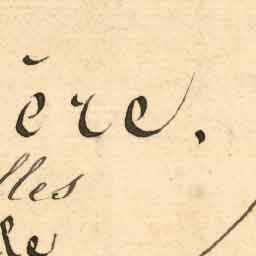 ère.
lles
le